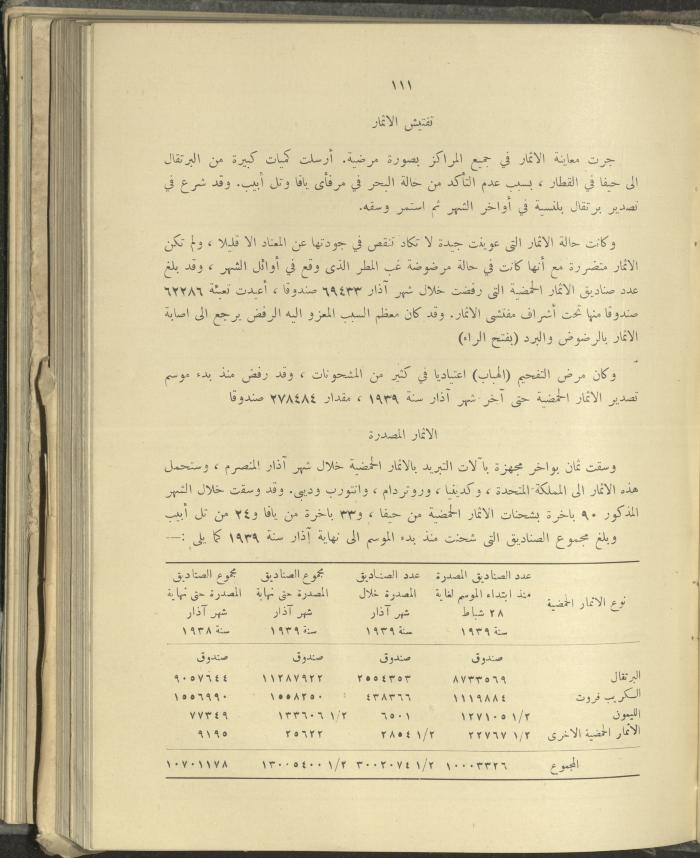 ١١١
تفتيش الاثمار
جرت معاينة الاثمار في جميع المراكز بصورة مرضية. أرسلت كميات كبيرة من البرتقال
الى حيفا في القطار ، بسبب عدم التأكد من حالة البحر في مرفأى يافا وتل أبيب. وقد شرع في
تصدير برتقال بلنسية في أواخر الشهر ثم استمر وسقه.
وكانت حالة الاثمار التى عوينت جيدة لا تكاد تنقص في جودتها عن المعتاد الا قليلا ، ولم تكن
الاثمار متضررة مع أنها كانت في حالة مرضوضة غب المطر الذى وقع في أوائل الشهر ، وقد بلغ
عدد صناديق الاثمار الحمضية التى رفضت خلال شهر آذار ٦٩٤٣٣ صندوقا ، أعيدت تعبئة ٦٢٢٨٦
صندوقا منها تحت أشراف مفتشى الاثمار. وقد كان معظم السبب المعزو اليه الرفض يرجع الى اصابة
الاثمار بالرضوض والبرد (بفتح الراء)
وكان مرض التفحيم (الهباب) اعتياديا في كثير من المشحونات ، وقد رفض منذ بدء موسم
تصدير الاثمار الحمضية حتى آخر شهر آذار سنة ١٩٣٩ ، مقدار ٢٧٨٤٨٤ صندوقا
الاثمار المصدرة
وسقت ثمان بواخر مجهزة بآلات التبريد بالاثمار الحمضية خلال شهر آذار المنصرم ، وستحمل
هذه الاثمار الى المملكة المتحدة ، وكدينيا ، وروتردام ، وانتورب ودبى. وقد وسقت خلال الشهر
المذكور ٩٠ باخرة بشحنات الاثمار الحمضية من حيفا ، و٣٣ باخرة من يافا و٢٤ من تل أبيب
وبلغ مجموع الصناديق التى شحنت منذ بدء الموسم الى نهاية آذار سنة ١٩٣٩ كما يلى :—
عدد الصناديق المصدرة عدد الصناديق مجموع الصناديق مجموع الصناديق
منذ ابتداء الموسم لغاية المصدرة خلال المصدرة حتى نهاية المصدرة حتى نهاية
نوع الاثمار الحمضية ٢٨ شباط شهر آذار شهر آذار شهر آذار
سنة ١٩٣٩ سنة ١٩٣٩ سنة ١٩٣٩ سنة ١٩٣٨
صندوق صندوق صندوق صندوق
البرتقال ٨٧٣٣٥٦٩ ٢٥٥٤٣٥٣ ١١٢٨٧٩٢٢ ٩٠٥٧٦٤٤
السكريب فروت ١١١٩٨٨٤ ٤٣٨٣٦٦ ١٥٥٨٢٥٠ ١٥٥٦٩٩٠
الليمون ١/٢ ١٢٧١٠٥ ٦٥٠١ ١/٢ ١٣٣٦٠٦ ٧٧٣٤٩
الأثمار الحمضية الاخرى ١/٢ ٢٢٧٦٧ ١/٢ ٢٨٥٤ ٢٥٦٢٢ ٩١٩٥
المجموع ١٠٠٠٣٣٢٦ ١/٢ ٣٠٠٢٠٧٤ ١/٢ ١٣٠٠٥٤٠٠ ١٠٧٠١١٧٨